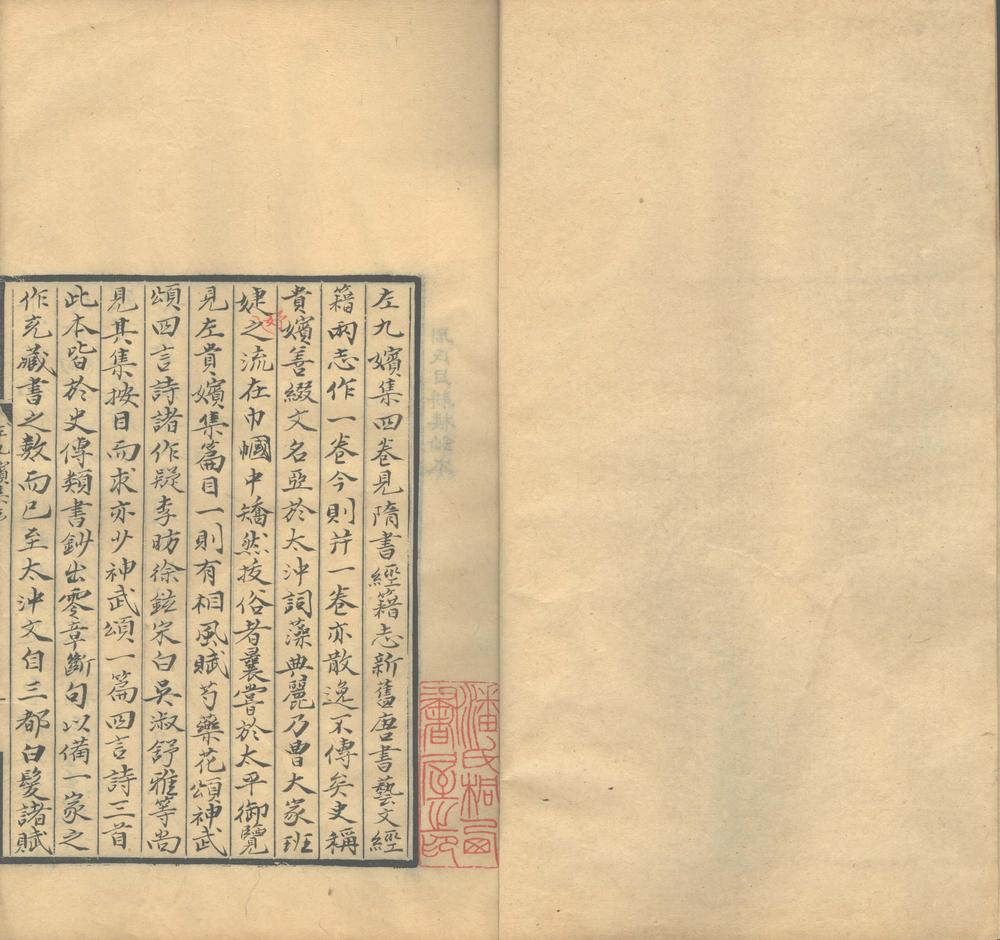 左九嬪集四卷見隋書經籍志新舊唐書藝文經
籍兩志作一卷今則并一卷亦散逸不傳矣史稱
貴嬪善綴文名亞於太沖詞藻典麗乃曹大家班
婕妤之流在巾幗中矯然拔俗者曩嘗於太平御覽
見左貴嬪集篇目一則有相風賦芍藥花頌神武
頌四言詩諸作疑李昉徐鉉宋白吳淑舒雅等尚
見其集按目而求亦少神武頌一篇四言詩三首
此本皆於史傳類書鈔出零章斷句以備一家之
作充藏書之數而已至太沖文自三都白髮諸賦
潘氏桐西
書屋之印